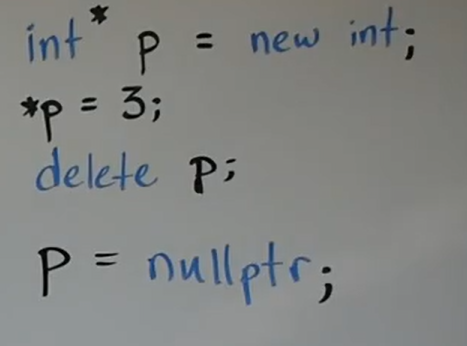 int* p = new int;
*p = 3;
delete p;
p = nullptr;